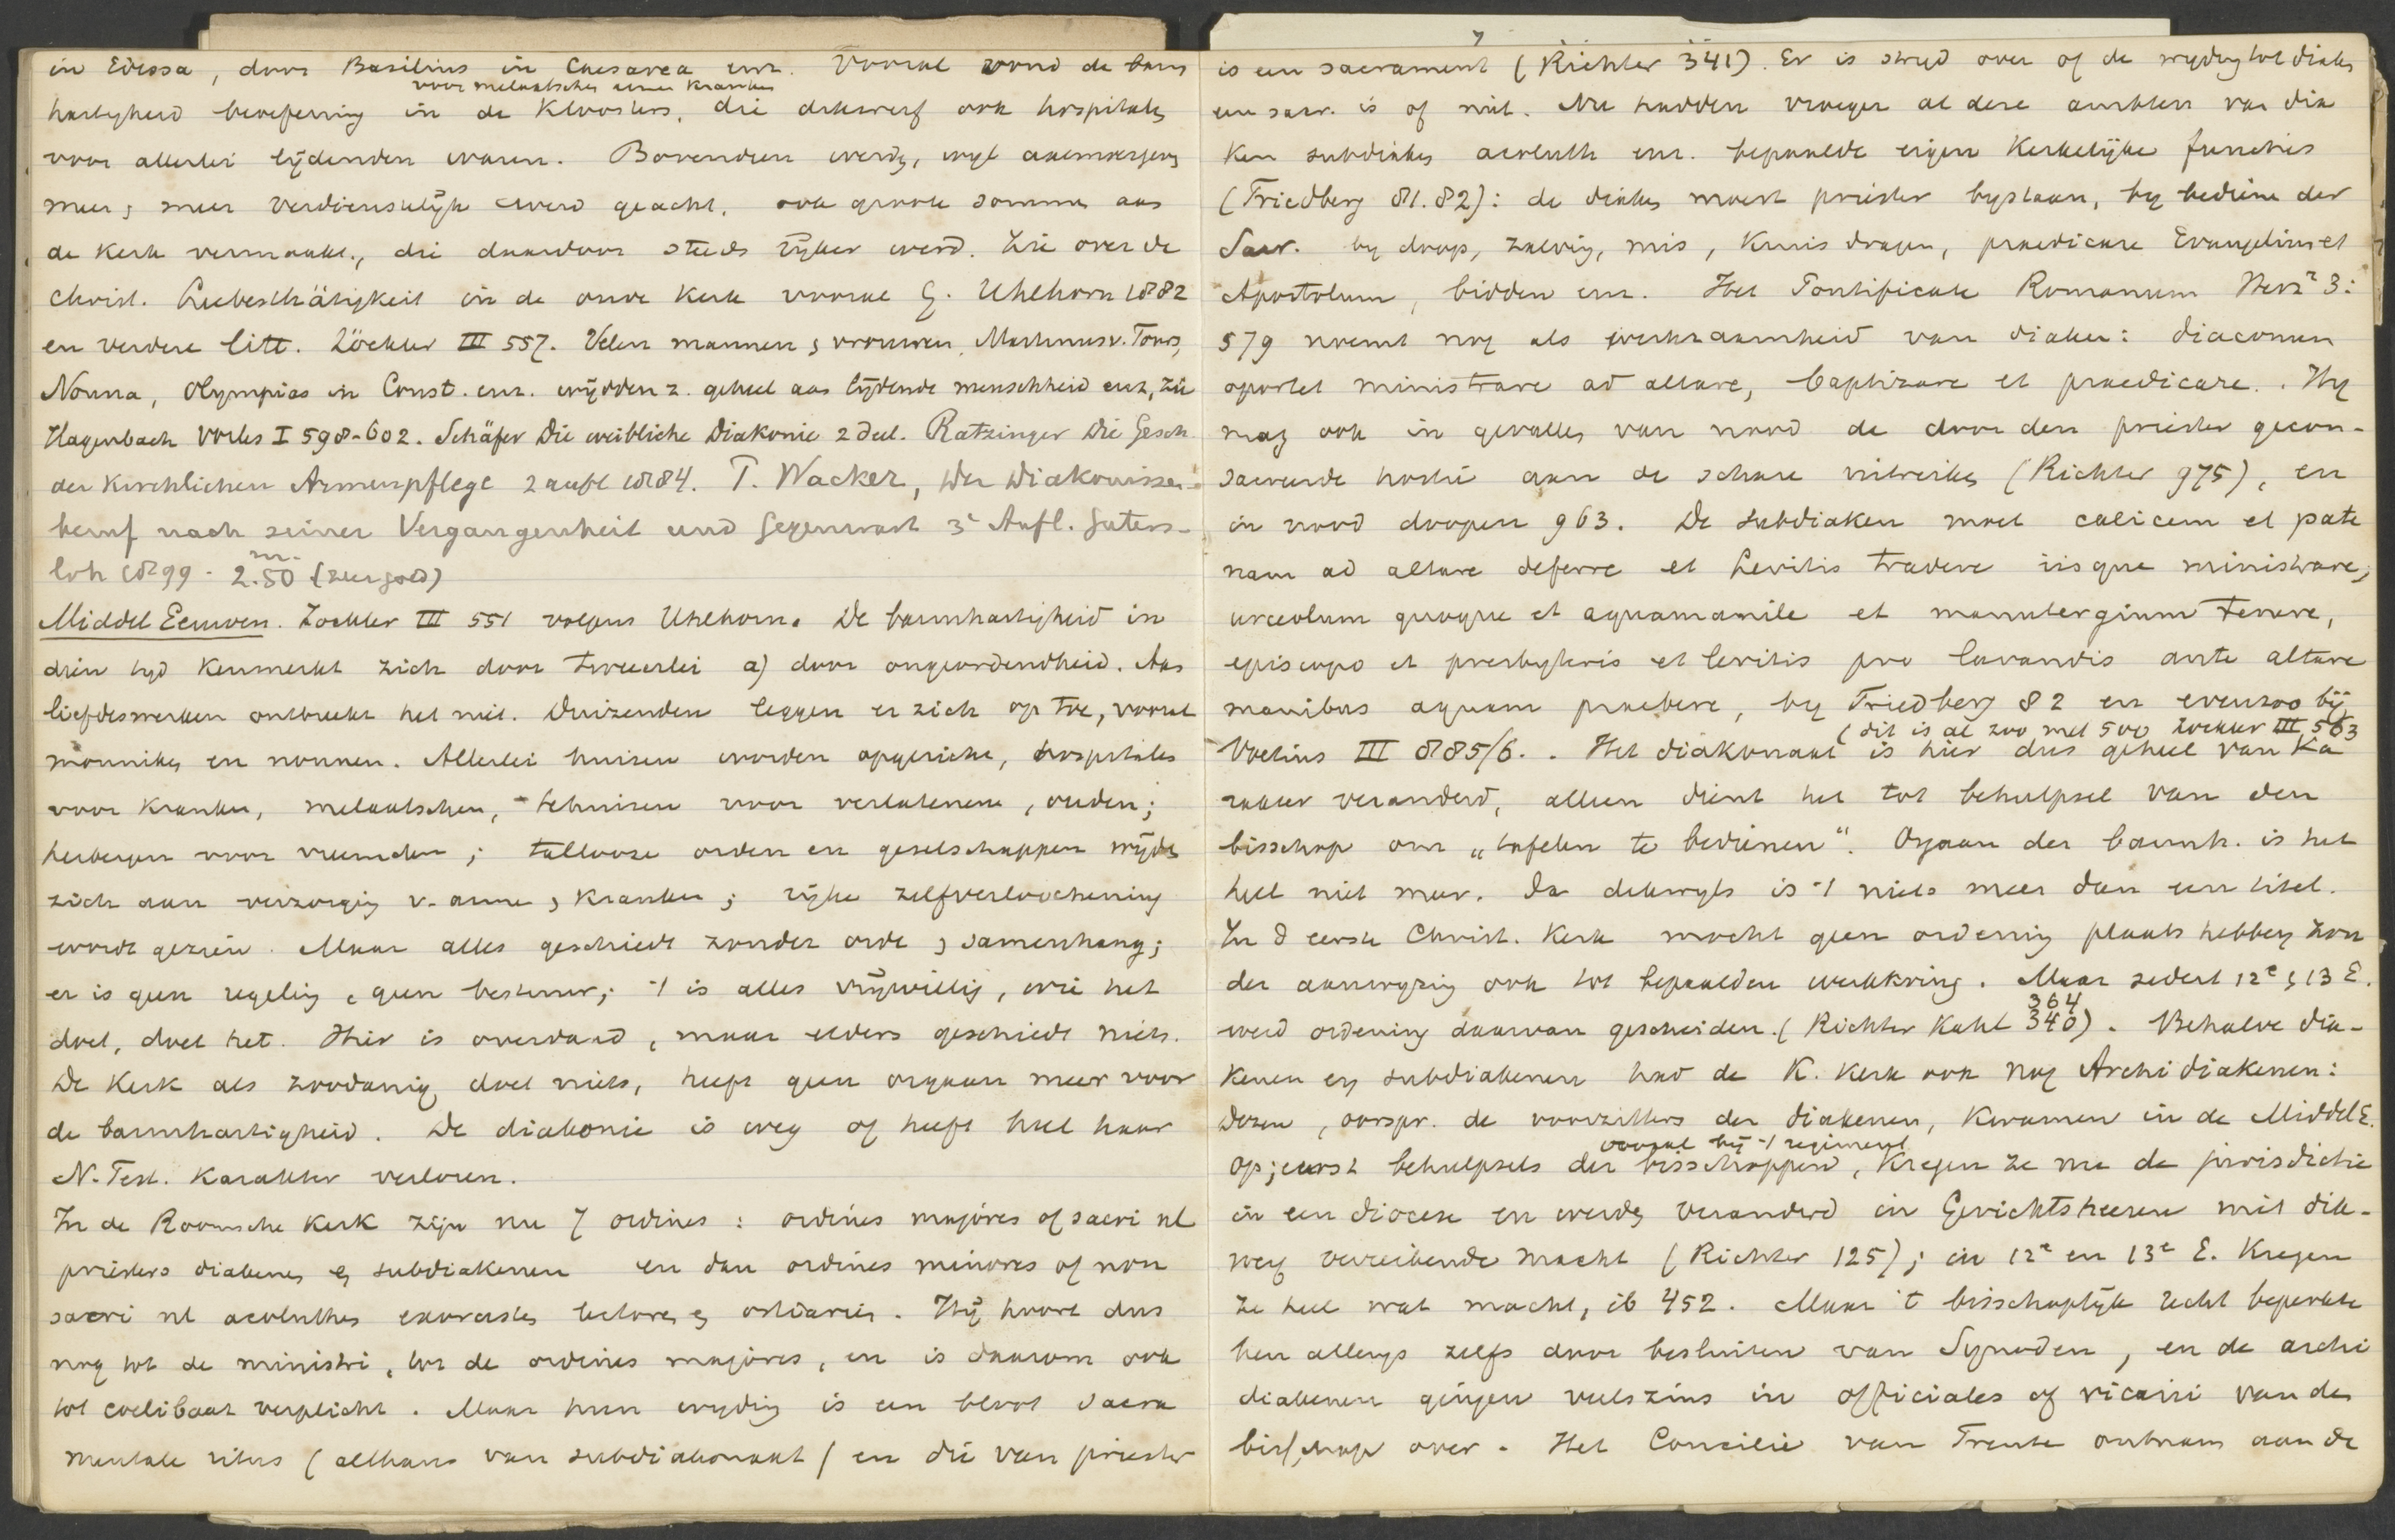 in Edessa, door Basilius in Caesarea enz. Vooral vond de barm
voor melaatschen armen kranken
hartigheid beoefening in de Kloosters, die dikwerf ook hospitalen
voor allerlei lijdenden waren. Bovendien werden, wijl
meer & meer verdienstelijk werd geacht, ook groote sommen aan
de Kerk vermaakt, die daardoor steeds rijker werd. Zie over de
Christ. Liebesthätigkeit in de oude Kerk vooral G. Uhlhorn 1882
en verdere litt. Zöckler III 557. Velen mannen & vrouwen, Martinus v. Tours,
Nonna, Olympias in Const. enz. wijdden z. geheel aan lijdende menschheid enz, zie
Hagenbach Vorles I 598-602. Schäfer Die weibliche Diakonie 2 deel. Ratzinger Die Gesch
der kirchlichen Armenpflege 2 aufl 1884. T. Wacker, Der Diakonissen-
beruf nach seiner Vergangenheit und Gegenwart 3e Aufl. Güters-
loh 1899 - 2.50 m. (zeer goed)
Middel Eeuwen. Zöckler III 551 volgens Uhlhorn. De barmhartigheid in
dien tijd kenmerkt zich door tweeërlei a) door ongeordendheid. Aan
liefdeswerken ontbreekt het niet. Duizenden leggen er zich op toe, vooral
monniken en nonnen. Allerlei huizen worden opgericht, hospitalen
voor kranken, melaatschen, tehuizen voor verlatenen, ouden;
herbergen voor vreemden; tallooze orden en gezelschappen wijden
zich aan verzorging v. arme & kranken; rijke zelfverloochening
wordt gezien. Maar alles geschiedt zonder orde & samenhang;
er is geen regeling, geen bestuur; 't is alles vrijwillig, wie het
doet, doet het. Hier is overdaad, maar elders geschiedt niets.
De Kerk als zoodanig doet niets, heeft geen orgaan meer voor
de barmhartigheid. De diakonie is weg of heeft heel haar
N. Test. Karakter verloren.
In de Roomsche Kerk zijn nu 7 ordines: ordines majores of sacri nl
priesters diakenen en subdiakenen en dan ordines minores of non
sacri nl acoluthen exorcisten lectoren en ostiarii. Hij hoort dus
nog tot de ministri, tot de ordines majores, en is daarom ook
tot coelibaat verplicht. Maar hun wijding is een bloot sacra
mentale ritus (althans van subdiakonaat) en die van priester
is een sacrament (Richter 341). Er is strijd over of de wijding tot diaken
een sacr. is of niet. Nu hadden vroeger al deze ambten van dia
ken subdiaken acoluth enz. bepaalde eigen Kerkelijke functies
(Friedberg 81.82): de diaken moest priester bijstaan, bij bedien der
Sacr. bij doop, zalving, mis, Kruis dragen, praedicare Evangelium et
Apostolum, bidden enz. Het Pontificale Romanum 3:
579 noemt nog als werkzaamheid van diaken: diaconum
oportet ministrare ad altare, baptizare et praedicare. Hij
mag ook in gevallen van nood de door den priester gecon-
sacreerde hostie aan de schare uitreiken (Richter 975), en
in nood doopen 963. De Subdiaken moet calicem et pate
nam ad altare deferre et Levitis tradere iisque ministrare,
urceolum quoque et aquamanile et manutergium tenere,
episcopo et presbyteris et levitis pro lavandis ante altare
manibus aquam praebere, bij Friedberg 82 en evenzoo bij
(dit is al zoo met 500 Zöckler III 563
Voetius III 885/6. Het diakonaat is hier dus geheel van Ka
rakter veranderd, alleen dient het tot behulpsel van den
bisschop om „tafelen te bedienen". Orgaan der barmh. is het
heel niet meer. Ja dikwijls is 't niets meer dan een titel.
In d eerste Christ. Kerk mocht geen ordening plaats hebben zon
der aanwijzing ook tot bepaalden werkkring. Maar sedert 12e & 13 E.
364
werd ordening daarvan gescheiden. (Richter Kahl 340). Behalve dia-
kenen en subdiakenen had de K. Kerk ook nog Archidiakenen:
Dezen, oorspr. de voorzitters der diakenen, kwamen in de Middel E.
vooral bij 't regiment
op; eerst behulpsels der bisschoppen, kregen ze nu de jurisdictie
in een diocese en werden veranderd in Gerichtsheeren met dik-
werf machtige macht (Richter 125); in 12e en 13e E. kregen
ze heel wat macht, ib 452. Maar 't bisschoplijk recht beperkte
hen allengs zelfs door besluiten van Synoden, en de archi
diakenen gingen veelszins in officiales of vicarii van den
bisschop over. Het Concilie van Trente ontnam aan de